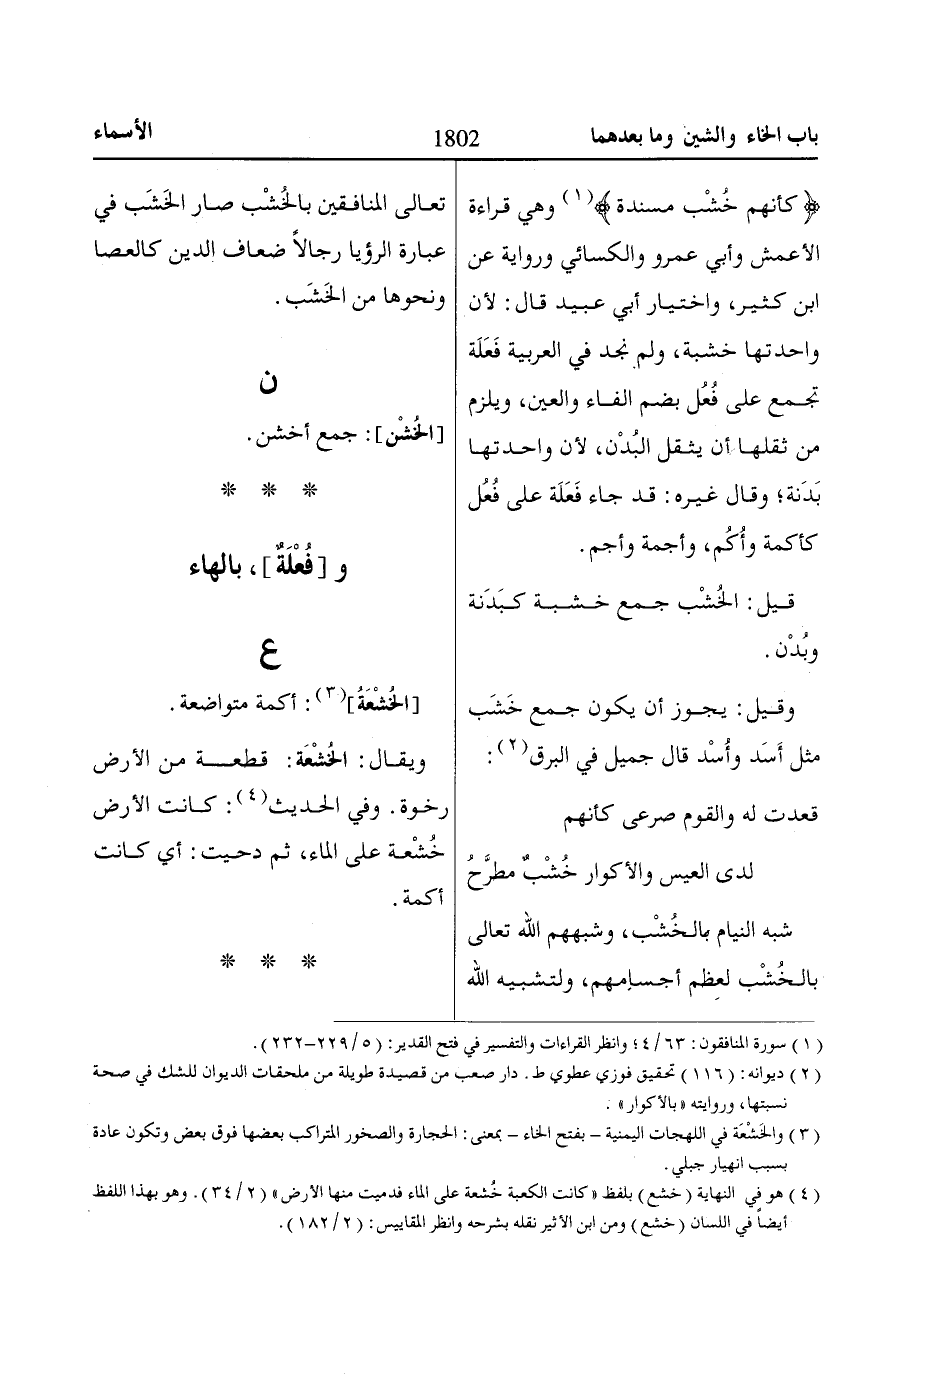 باب الخاء والشين وما بعدهما
1802
الأسماء
﴿كأنهم خُشْب مسندة﴾(١) وهي قراءة
الأعمش وأبي عمرو والكسائي ورواية عن
ابن كثير، واختيار أبي عبيد قال: لأن
واحدتها خشبة، ولم نجد في العربية فَعَلَة
تجمع على فُعُل بضم الفاء والعين، ويلزم
من ثقلها أن يثقل البُدْن، لأن واحدتها
بَدَنة؛ وقال غيره: قد جاء فَعَلة على فُعُل
كأكمة وأُكُم، وأجمة وأجم.
قيل: الخُشْب جمع خشبة كبَدَنة
وبُدْن.
وقيل: يجوز أن يكون جمع خَشَب
مثل أَسَد وأُسْد قال جميل في البرق(٢):
قعدت له والقوم صرعى كأنهم
لدى العيس والأكوار خُشْبٌ مطرَّحُ
شبه النيام بالخُشْب، وشبههم الله تعالى
بالخُشْب لعظم أجسامهم، ولتشبيه الله
تعالى المنافقين بالخُشْب صار الخَشَب في
عبارة الرؤيا رجالاً ضعاف الدين كالعصا
ونحوها من الخَشَب.
ن
[الخُشْن]: جمع أخشن.
* * *
و [فُعْلَةٌ]، بالهاء
ع
[الخُشْعَةُ](٣): أكمة متواضعة.
ويقال: الخُشْعَة: قطعة من الأرض
رخوة. وفي الحديث(٤): كانت الأرض
خُشْعة على الماء، ثم دحيت: أي كانت
أكمة.
* * *
(١) سورة المنافقون: ٤/٦٣؛ وانظر القراءات والتفسير في فتح القدير: (٥/٢٢٩–٢٣٢).
(٢) ديوانه: (١١٦) تحقيق فوزي عطوي ط. دار صعب من قصيدة طويلة من ملحقات الديوان للشك في صحة
نسبتها، وروايته «بالأكوار».
(٣) والخَشْعَة في اللهجات اليمنية – بفتح الخاء – بمعنى: الحجارة والصخور المتراكب بعضها فوق بعض وتكون عادة
بسبب انهيار جبلي.
(٤) هو في النهاية (خشع) بلفظ «كانت الكعبة خُشعة على الماء فدميت منها الأرض» (٢/٣٤). وهو بهذا اللفظ
أيضاً في اللسان (خشع) ومن ابن الأثير نقله بشرحه وانظر المقاييس: (٢/١٨٢).